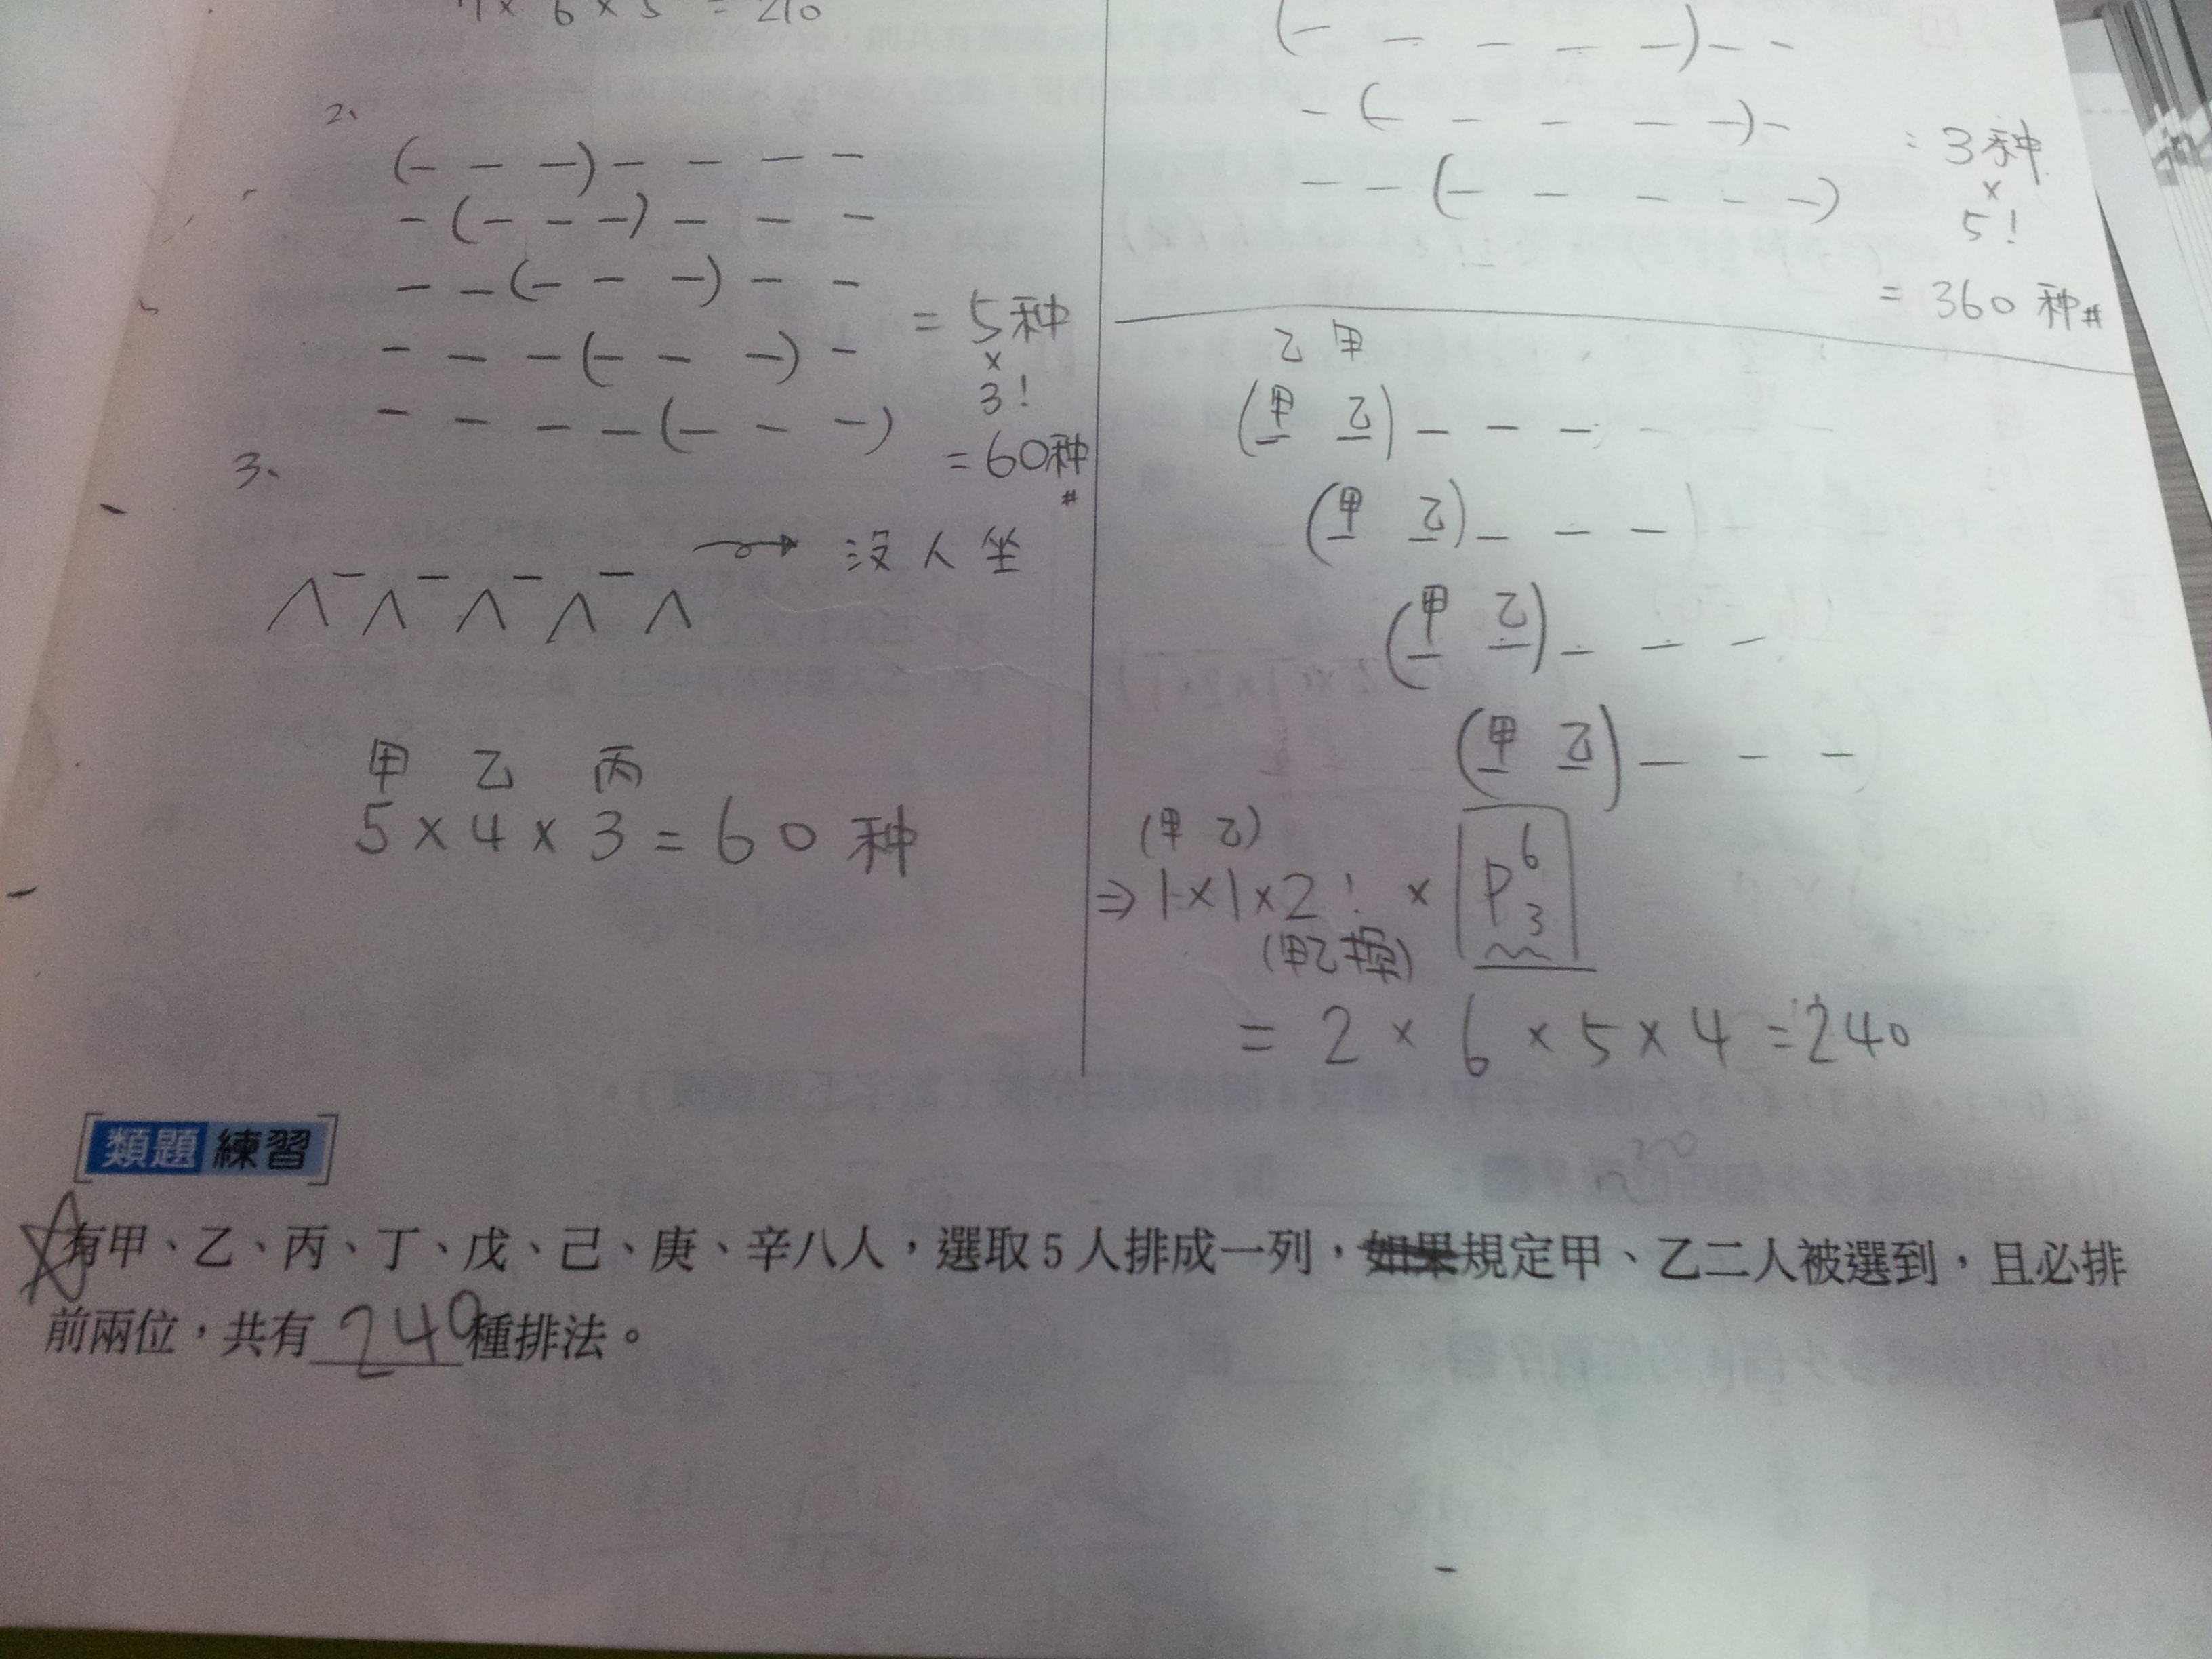 7 × 6 × 5 = 210
2、
(— — —) — — — —
— (— — —) — — —
— — (— — —) — —
— — — (— — —) —
— — — — (— — —)
= 5种
×
3!
= 60种
#
3、
→ 沒人坐
甲 乙 丙
5 × 4 × 3 = 60 种
(— — — — —) — —
— (— — — — —) —
— — (— — — — —)
: 3种
×
5!
= 360 种#
乙 甲
(甲 乙) — — —
(甲 乙) — — —
(甲 乙) — — —
(甲 乙) — — —
(甲 乙)
⇒ 1×1×2! × P⁶₃
(甲乙換)
= 2 × 6 × 5 × 4 = 240
類題 練習
有甲、乙、丙、丁、戊、己、庚、辛八人，選取5人排成一列，如果規定甲、乙二人被選到，且必排
前兩位，共有 240 種排法。